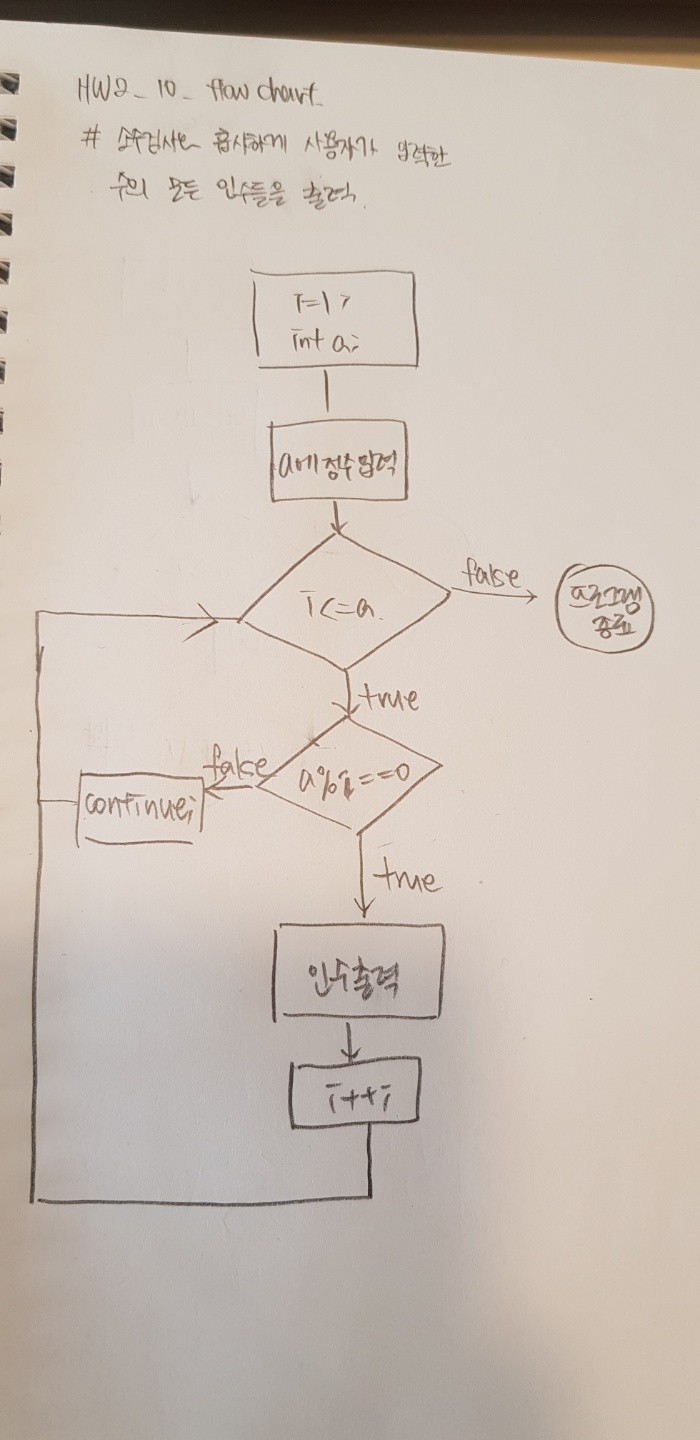 HW2_10_ flow chart_
# 소수검사와 흡사하게 사용자가 입력한
수의 모든 인수들을 출력.
i=1;
int a;
a에 정수입력
i<=a
false
프로그램
종료
true
a%i==0
false
continue;
true
인수출력
i++;